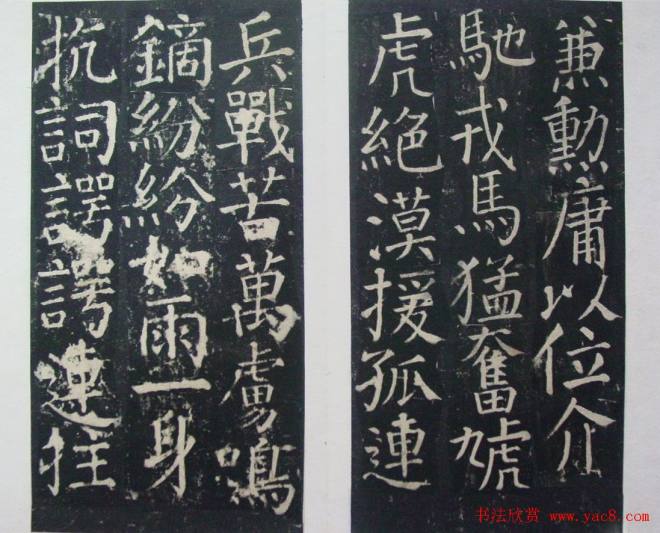 兼勲庸以位介
馳戎馬猛奮虓
虎絶漠援孤連
兵戰苦萬虜鳴
鏑紛紛如雨一身
抗詞諤諤連拄
书法欣赏 www.yac8.com